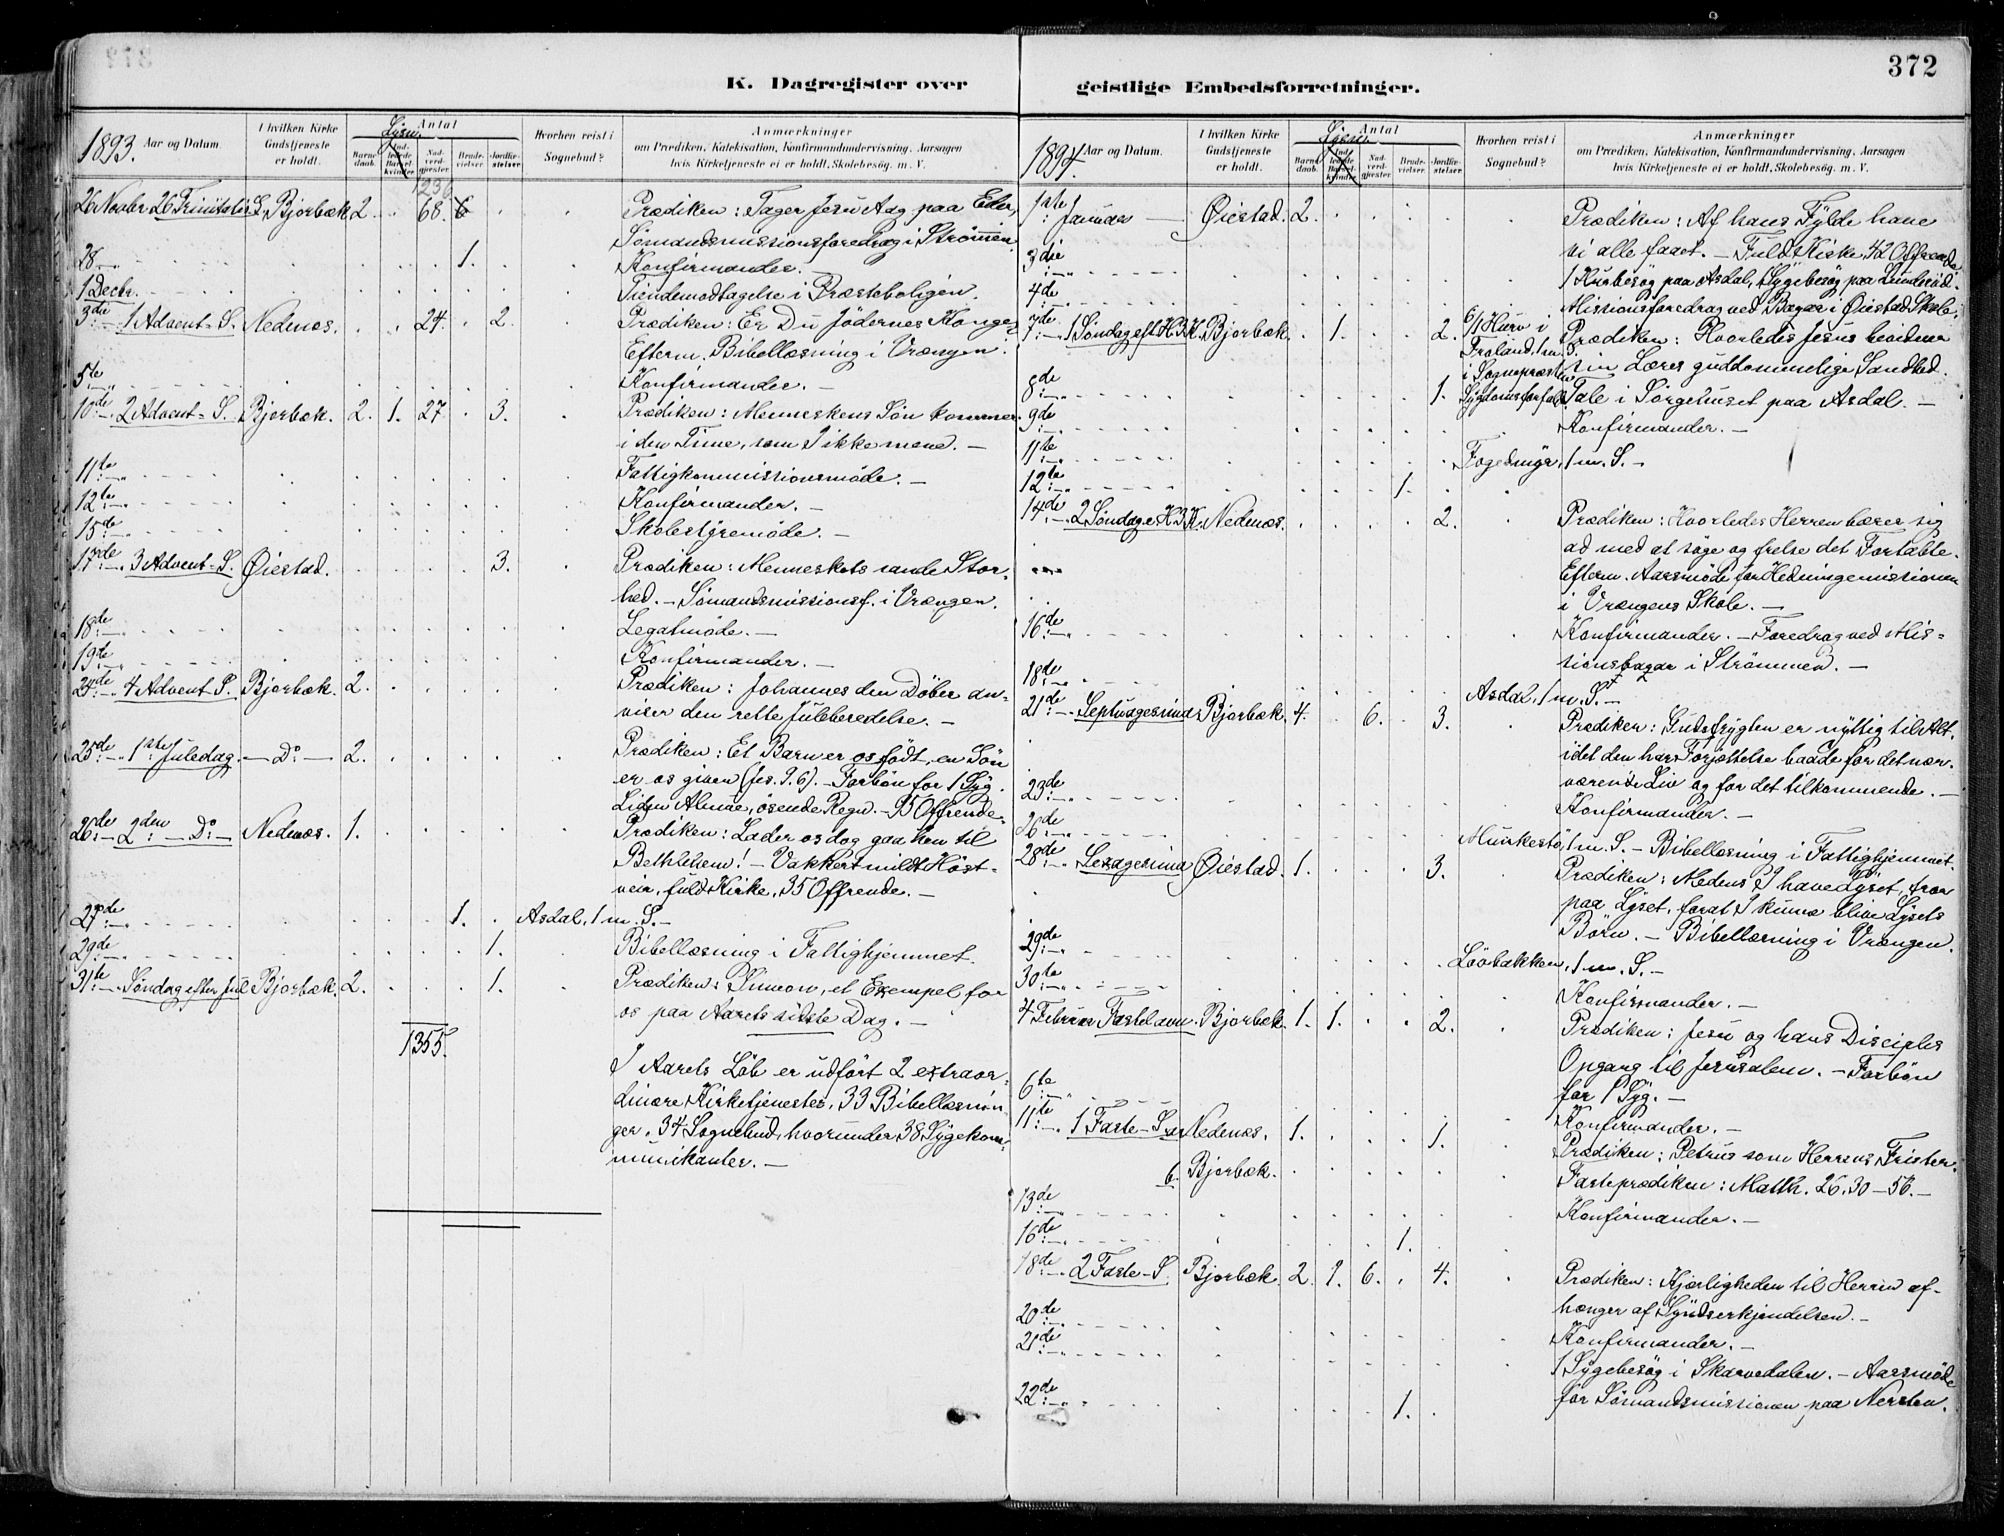 372
K. Dagregister over
1893. Aar og Datum.
I hvilken Kirke Gudstjeneste er holdt.
Antal
Lysn.
Barnedaab.
Indledede Barselkvinder
Nadverdgjester
Brudevielser.
Jordfæstelser.
Hvorhen reist i Sognebud?
Anmærkninger
om Prædiken, Katekisation, Konfirmandundervisning. Aarsagen
hvis Kirketjeneste ei er holdt, Skolebesøg. m. V.
1236
26 Novbr 26 Trinitatis S. Bjorbæk 2. . 68. 6 . . Prædiken: Tager Jesu Aag paa Eder,
Sømandsmissionsforedrag i Strømmen.
28 1. Konfirmander. —
1 Decbr. Tiendemodtagelse i Præsteboligen.
3die 1 Advent-S. Nedenæs. . . 24. . 2. Prædiken: Er Du Jødernes Konge?
Efterm. Bibellæsning i Vrængen.
5te Konfirmander. —
10de 2 Advent-S. Bjorbæk. 2. 1. 27. . 3. Prædiken: Menneskens Søn kommer
i den Time, som I ikke mene. —
11te Fattigkommissionsmøde. —
12te Konfirmander. —
15de Skolestyremøde. —
17de 3 Advent-S. Øiestad. 3. Prædiken: Menneskets sande Stor-
hed. — Sømandsmissionsf. i Vrængen.
18de Legatmøde. —
19de Konfirmander. —
24de 4 Advent S. Bjorbæk. 2. Prædiken: Johannes den Døber an-
viser den rette Juleberedelse. —
25de 1ste Juledag. — Do — 2. Prædiken: Et Barn er os født, en Søn
er os given (Jes. 9. 6). — Forbøn for 1 Syg.
Liden Almue, øsende Regn. — 95 Offrende.
26de 2den — Do — Nedenæs. 1. Prædiken: Lader os dog gaa hen til
Bethlehem! — Vakkert mildt Høst-
veir, fuld Kirke, 35 Offrende. —
27de 1. . Asdal, 1 m. S. —
29de 1. Bibellæsning i Fattighjemmet.
31te Søndag efter Jul Bjorbæk. 2. 1. Prædiken: Simeon, et Exempel for
os paa Aarets sidste Dag. —
1355.
I Aarets Løb er udført 2 extraor-
dinære Kirketjenester, 33 Bibellæsnin-
ger, 34 Sognebud, hvorunder 38 Sygekom-
munikanter. —
geistlige Embedsforretninger.
1894. Aar og Datum.
I hvilken Kirke Gudstjeneste er holdt.
Antal
Lysn.
Barnedaab.
Indledede Barselkvinder
Nadverdgjester.
Brudevielser.
Jordfæstelser.
Hvorhen reist i Sognebud?
Anmærkninger
om Prædiken, Katekisation, Konfirmandundervisning, Aarsagen
hvis Kirketjeneste ei er holdt, Skolebesøg. m. V.
1ste Januar — Øiestad. 2. Prædiken: Af hans Fylde have
vi alle faaet. — Fuld Kirke, 42 Offrende
3die 1 Husbesøg paa Asdal, 1 Sygebesøg paa Lunderød.
4de Missionsforedrag ved Bazar i Øiestad Skole.
7de 1 Søndag eft. H3K. Bjorbæk. . 1. . . 2. 6/1 Hurv i Prædiken: Hvorledes Jesus beviser
Froland, 1 m. S. sin Læres guddommelige Sandhed.
8de 1. i Sognepræsten Sygdomsforfald. Tale i Sørgehuset paa Asdal. —
9de Konfirmander. —
11te Fogedmyr, 1 m. S. —
12te 1.
14de 2 Søndag e. H3K. Nedenæs. 2. Prædiken: Hvorledes Herren bærer sig
ad med at søge og frelse det Fortabte.
Efterm. Aarsmøde for Hedningemissionen
i Vrængens Skole. —
16de Konfirmander. — Foredrag ved Mis-
sionsbazar i Strømmen. —
18de Asdal, 1 m. S. —
21de Septuagesima Bjorbæk. 4. . 6. . 3. Prædiken: Gudsfrygten er nyttig til Alt,
idet den har Forjættelse baade for det nær-
værende Liv og for det tilkommende. —
23de Konfirmander. —
26de 1 m. S. — Bibellæsning i Fattighjemmet.
28de Sexagesima Øiestad. 1. 3. Prædiken: Medens I have Lyset, tror
paa Lyset, forat I kunne blive Lysets
Børn. — Bibellæsning i Vrængen.
29de Løvbakken, 1 m. S. —
30te Konfirmander. —
4 Februar Fastelavn. Bjorbæk. 1. 1. . . 2. Prædiken: Jesu og hans Disciples
Opgang til Jerusalem. — Forbøn
for 1 Syg. —
6te Konfirmander. —
11te 1 Faste-S. Nedenæs. 1. 1. Prædiken: Petrus som Herrens Frister.
6. Bjorbæk. Fasteprædiken: Matth. 26. 30-56. —
13de Konfirmander. —
16de 1.
18de 2 Faste-S. Bjorbæk 2. 1. 6. . 4. Prædiken: Kjærligheden til Herren af-
hænger af Syndserkjendelsen. —
20de Konfirmander. —
21de 1 Sygebesøg i Skarvedalen. — Aarsmøde
22de 1. for Sømandsmissionen paa Nersten.